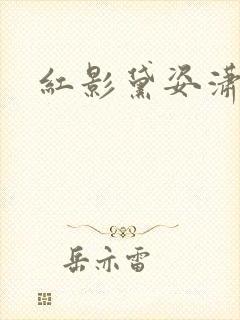 紅影黛姿瀟
岳亦雷